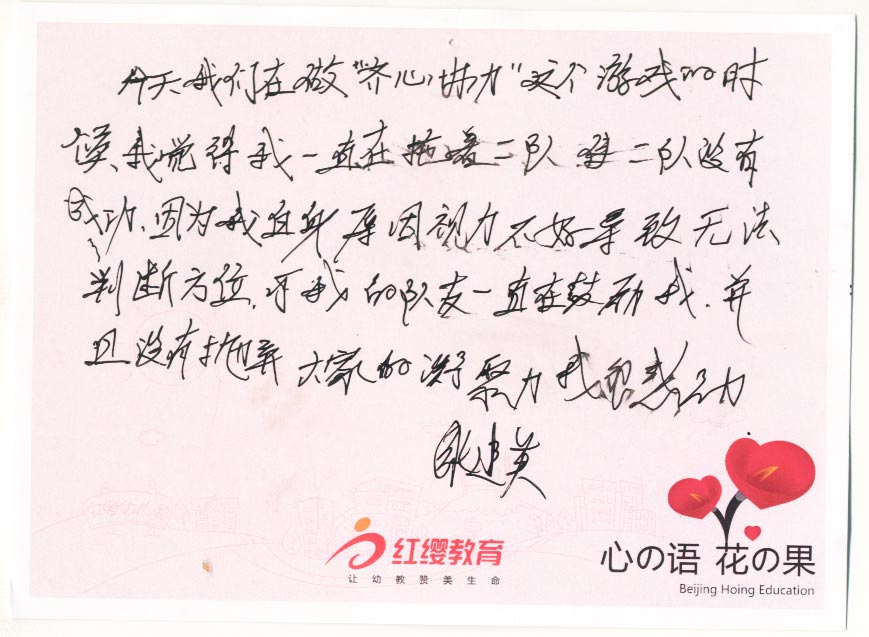 今天我们在做“齐心协力”这个游戏的时
候、我觉得我一直在拖着二队 使二队没有
成功、因为我自身原因视力不好导致无法
判断方位,可我的队友一直在鼓励我、并
且没有抛弃 大家的凝聚力我很感动
张建英
红缨教育
让幼教赞美生命
心の语 花の果
Beijing Hoing Education